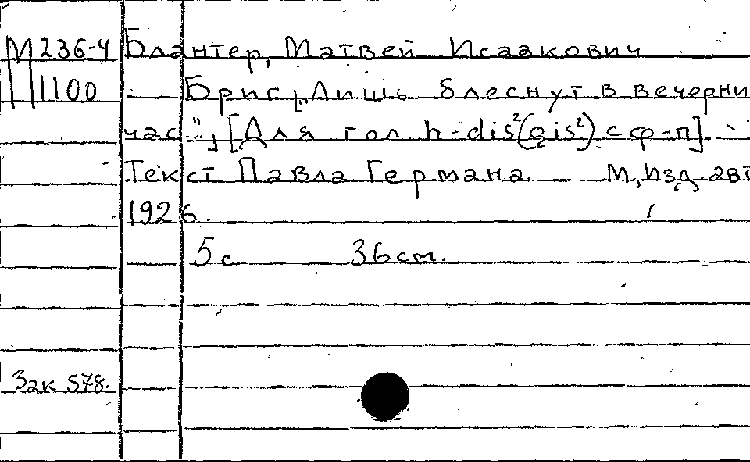 М236-4 Блантер, Матвей Исаакович
1100 Бриг [„Лишь блеснут в вечерни
час"], [Для гол. h-dis²(gis²) с ф-п].
Текст Павла Германа. М, Изд. авт
1926.
5с 36см.
Зак 578.